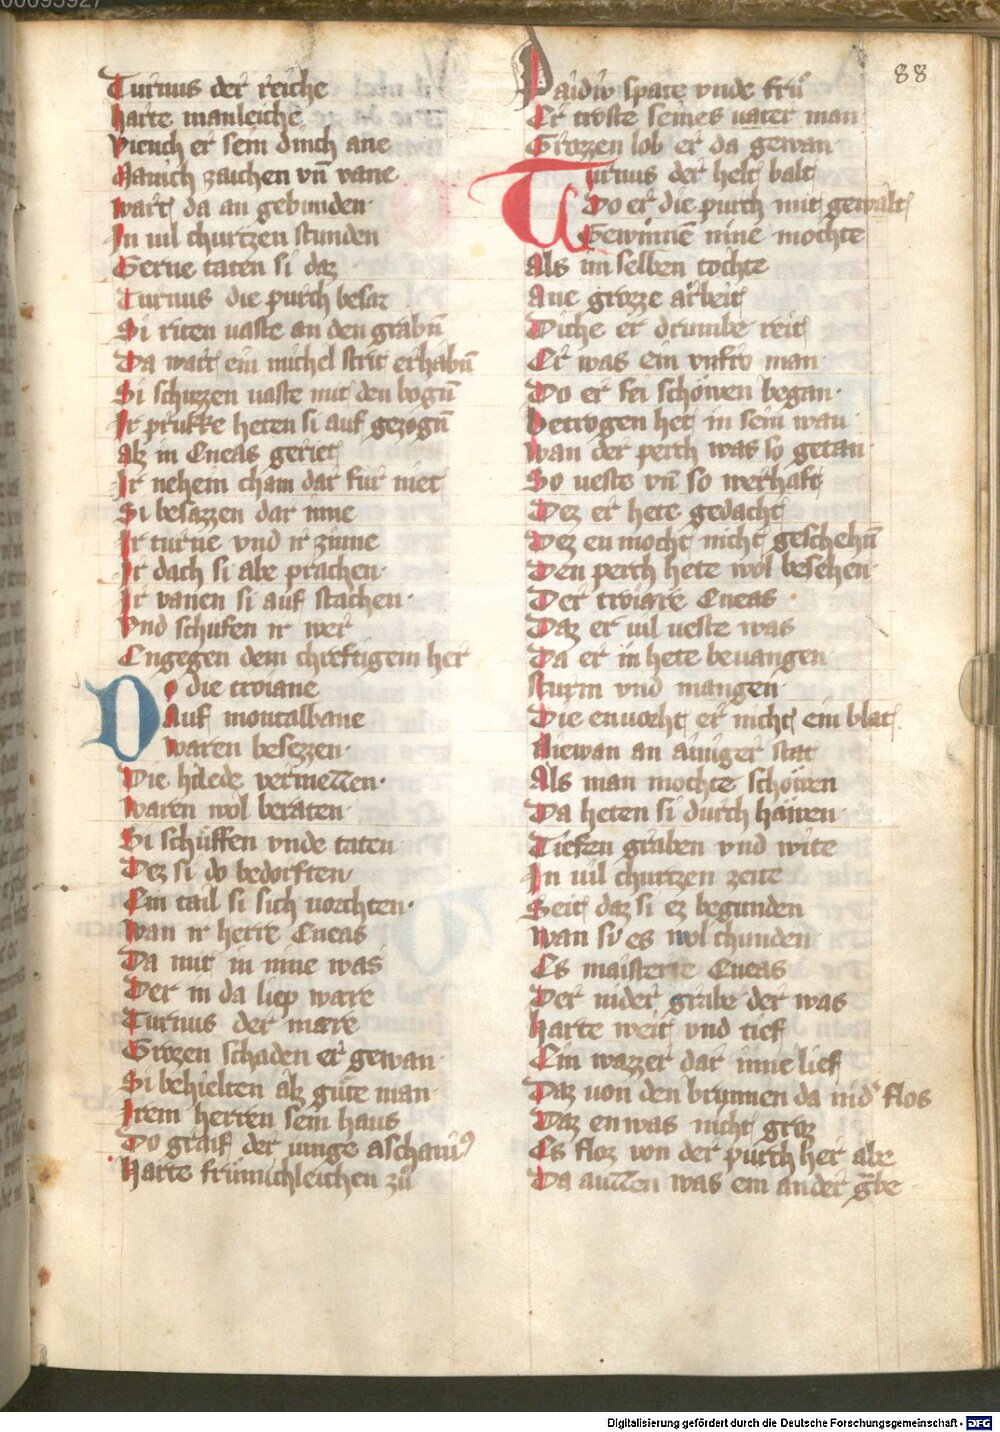 Turnus der reiche
Harte manleiche
Vieuch er sein dinch ane
Manich zaichen vn̄ vane
Wart da an gebunden
In uil churtzen stunden
Gerne taten si daz
Turnus die purch besaz
Si riten uaste an den grabn̄
Da wart ein michel strit erhabn̄
Si schuzzen uaste mit den bogn̄
Ir prukke heten si auf gezogn̄
Alz in Eneas geriet
Ir nehein cham dar fur niet
Si besazzen dar inne
Ir turne vnd ir zinne
Ir dach si abe prachen
Ir vanen si auf stachen
Vnd schufen ir wer
Engegen dem chreftigem her
Do die troiane
Auf montalbane
Waren besezzen
Die helede vermezzen
Waren wol beraten
Si schuffen vnde taten
Dez si do bedorften
Ein tail si sich uorchten
Wan ir herre Eneas
Da mit in nine was
Der in da liep ware
Turnus der mare
Grozen schaden er gewan
Si behielten alz gute man
Irem herren sein haus
Do graif der iunge aschani9
Harte frumichleichen zů
88
Paidiv spate vnde frů
Er troste seines uater man
Grozzen lob er da gewan
Turnus der helt balt
Do er die purch mit gewalt
Gewinnē nine mochte
Als im selben tochte
Ane grozze arbeit
Diche er drumbe reit
Er was ein vnfro man
Do er sei schowen began
Betrogen het in sein wan
Wan der perch was so getan
So ueste vn̄ so werhaft
Dez er hete gedacht
Dez en mocht nicht geschehn̄
Den perch hete wol besehen
Der troiare Eneas
Daz er uil ueste was
Da er in hete beuangen
Sturm vnd mangen
Die enuorht er nicht ein blat
Niewan an ainiger stat
Als man mochte schowen
Da heten si durch hawen
Tiefen graben vnd wite
In uil churtzen zeite
Seit daz si ez begunden
Wan si es wol chunden
Es maisterte Eneas
Der nider grabe der was
Harte weit vnd tief
Ein wazzer dar inne lief
Daz von den brunnen da nid' flos
Daz enwas nicht groz
Es floz von der purch her abe
Da auzzen was ein ander g̃be
Digitalisierung gefördert durch die Deutsche Forschungsgemeinschaft - DFG